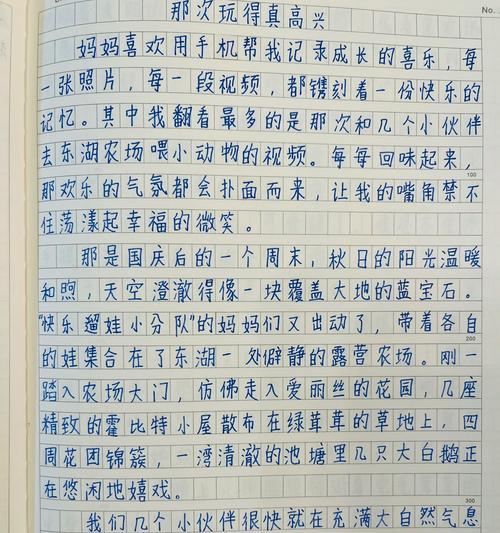 No.
那次玩得真高兴
妈妈喜欢用手机帮我记录成长的喜乐，每
一张照片，每一段视频，都镌刻着一份快乐的
记忆。其中我翻看最多的是那次和几个小伙伴
去东湖农场喂小动物的视频。每每回味起来，
100
那欢乐的气氛都会扑面而来，让我的嘴角禁不
住荡漾起幸福的微笑。
那是国庆后的一个周末，秋日的阳光温暖
和煦，天空澄澈得像一块覆盖大地的蓝宝石。
“快乐遛娃小分队”的妈妈们又出动了，带着各自
200
的娃集合在了东湖一处僻静的露营农场。刚一
踏入农场大门，仿佛走入爱丽丝的花园，几座
精致的霍比特小屋散布在绿茸茸的草地上，四
周花团锦簇，一湾清澈的池塘里几只大白鹅正
在悠闲地嬉戏。
300
我们几个小伙伴很快就在充满大自然气息